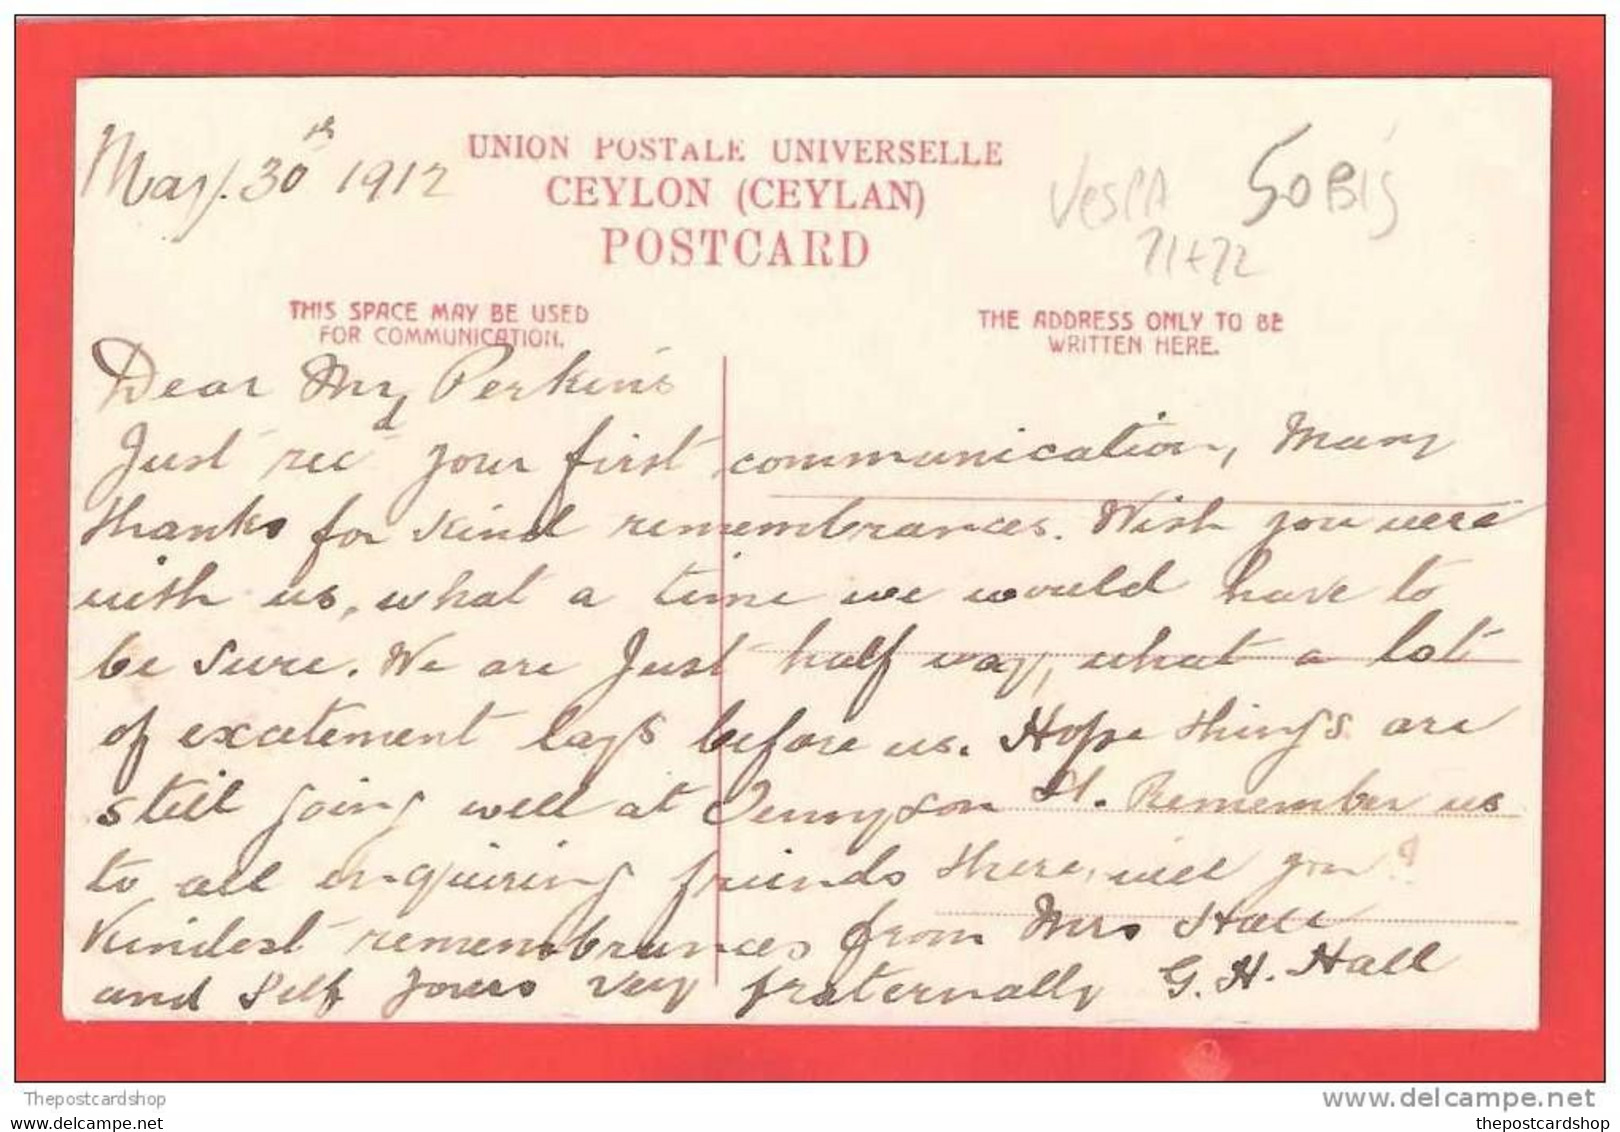 May. 30th 1912
UNION POSTALE UNIVERSELLE
CEYLON (CEYLAN)
POSTCARD
VESPA 50Bis
71+72
THIS SPACE MAY BE USED
FOR COMMUNICATION.
THE ADDRESS ONLY TO BE
WRITTEN HERE.
Dear Mr Perkins
Just recd your first communication, Many
thanks for kind remembrances. Wish you were
with us, what a time we would have to
be sure. We are Just half way, what a lot
of excitement lays before us. Hope things are
still going well at Tennyson St. Remember us
to all enquiring friends there, will you?
Kindest remembrances from Mrs Hall
and Self Yours very fraternally G. H. Hall
Thepostcardshop
www.delcampe.net
thepostcardshop thepostcardshop